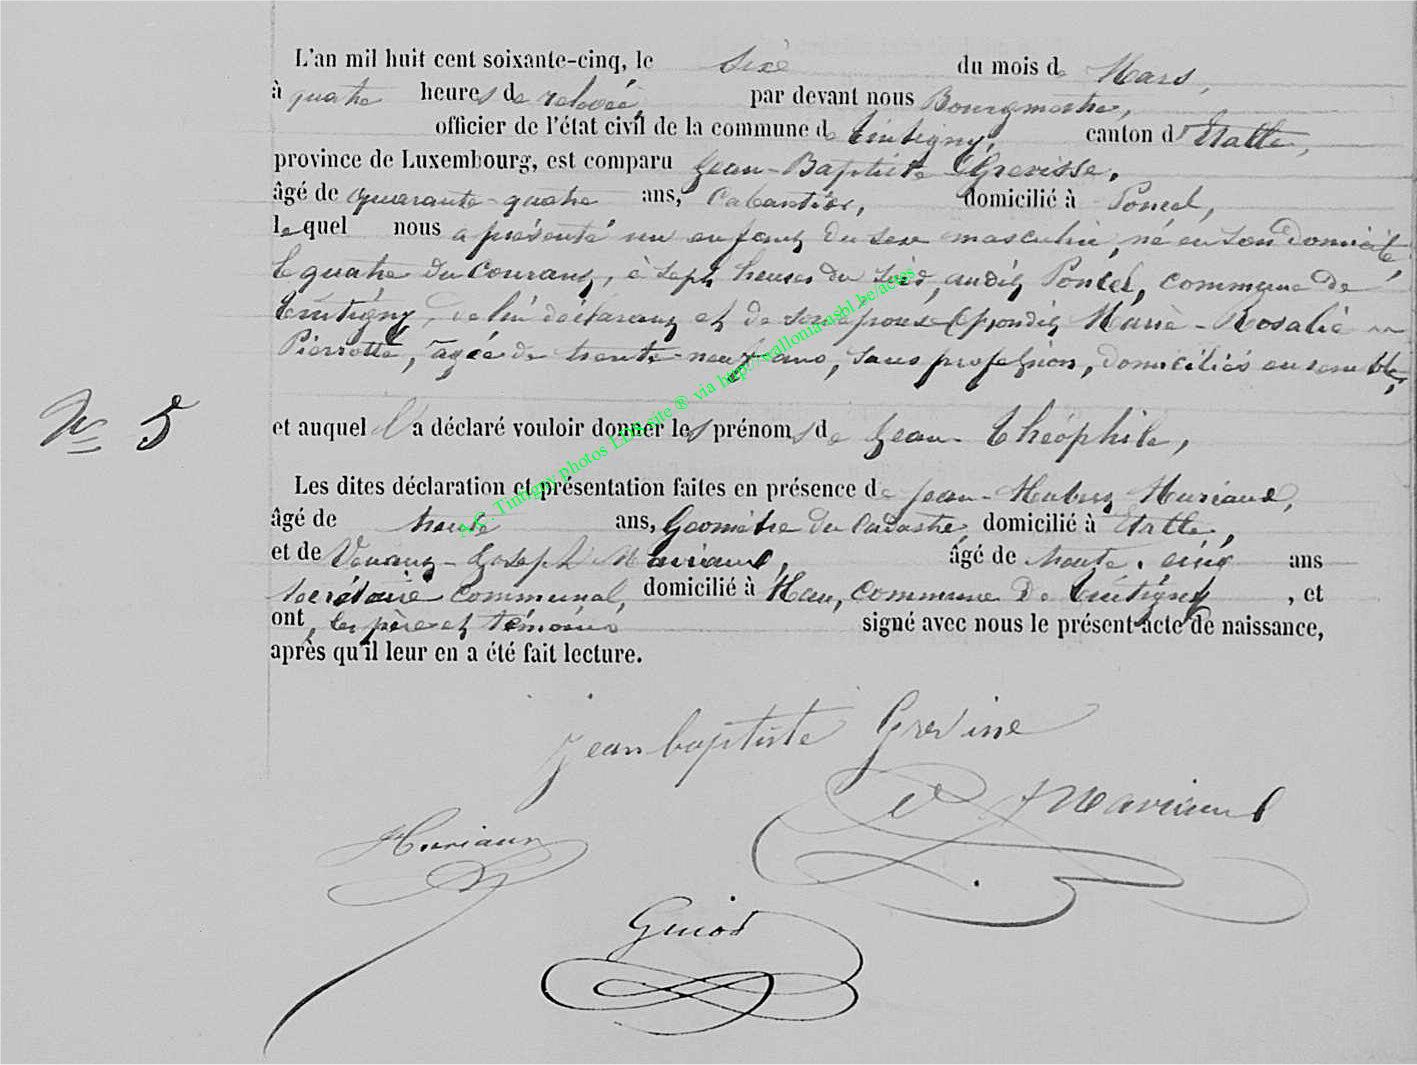 L'an mil huit cent soixante-cinq, le six du mois de Mars,
à quatre heures de relevée, par devant nous Bourgmestre,
officier de l'état civil de la commune de Tintigny, canton d'Etalle,
province de Luxembourg, est comparu Jean-Baptiste Grevisse,
âgé de quarante-quatre ans, Cabaretier, domicilié à Poncel,
lequel nous a présenté un enfant du sexe masculin, né en son domicile
le quatre du courant, à sept heures du soir, audit Poncel, commune de
Tintigny, de lui déclarant et de son épouse Marie-Rosalie
Pierrotte, âgée de trente-neuf ans, sans profession, domiciliés ensemble,
N° 5
et auquel il a déclaré vouloir donner les prénoms de Jean-Théophile,
Les dites déclaration et présentation faites en présence de Jean-Hubert Huriaux,
âgé de trente ans, Géomètre du Cadastre, domicilié à Etalle,
et de Joseph âgé de trente-cinq ans
secrétaire communal, domicilié à Han, commune de Tintigny, et
ont, les père et témoins signé avec nous le présent acte de naissance,
après qu'il leur en a été fait lecture.
A.C. Tintigny photos LDS site ® via http://wallonia-asbl.be/actes
jean baptiste Grevisse
Huriaux
Guiot